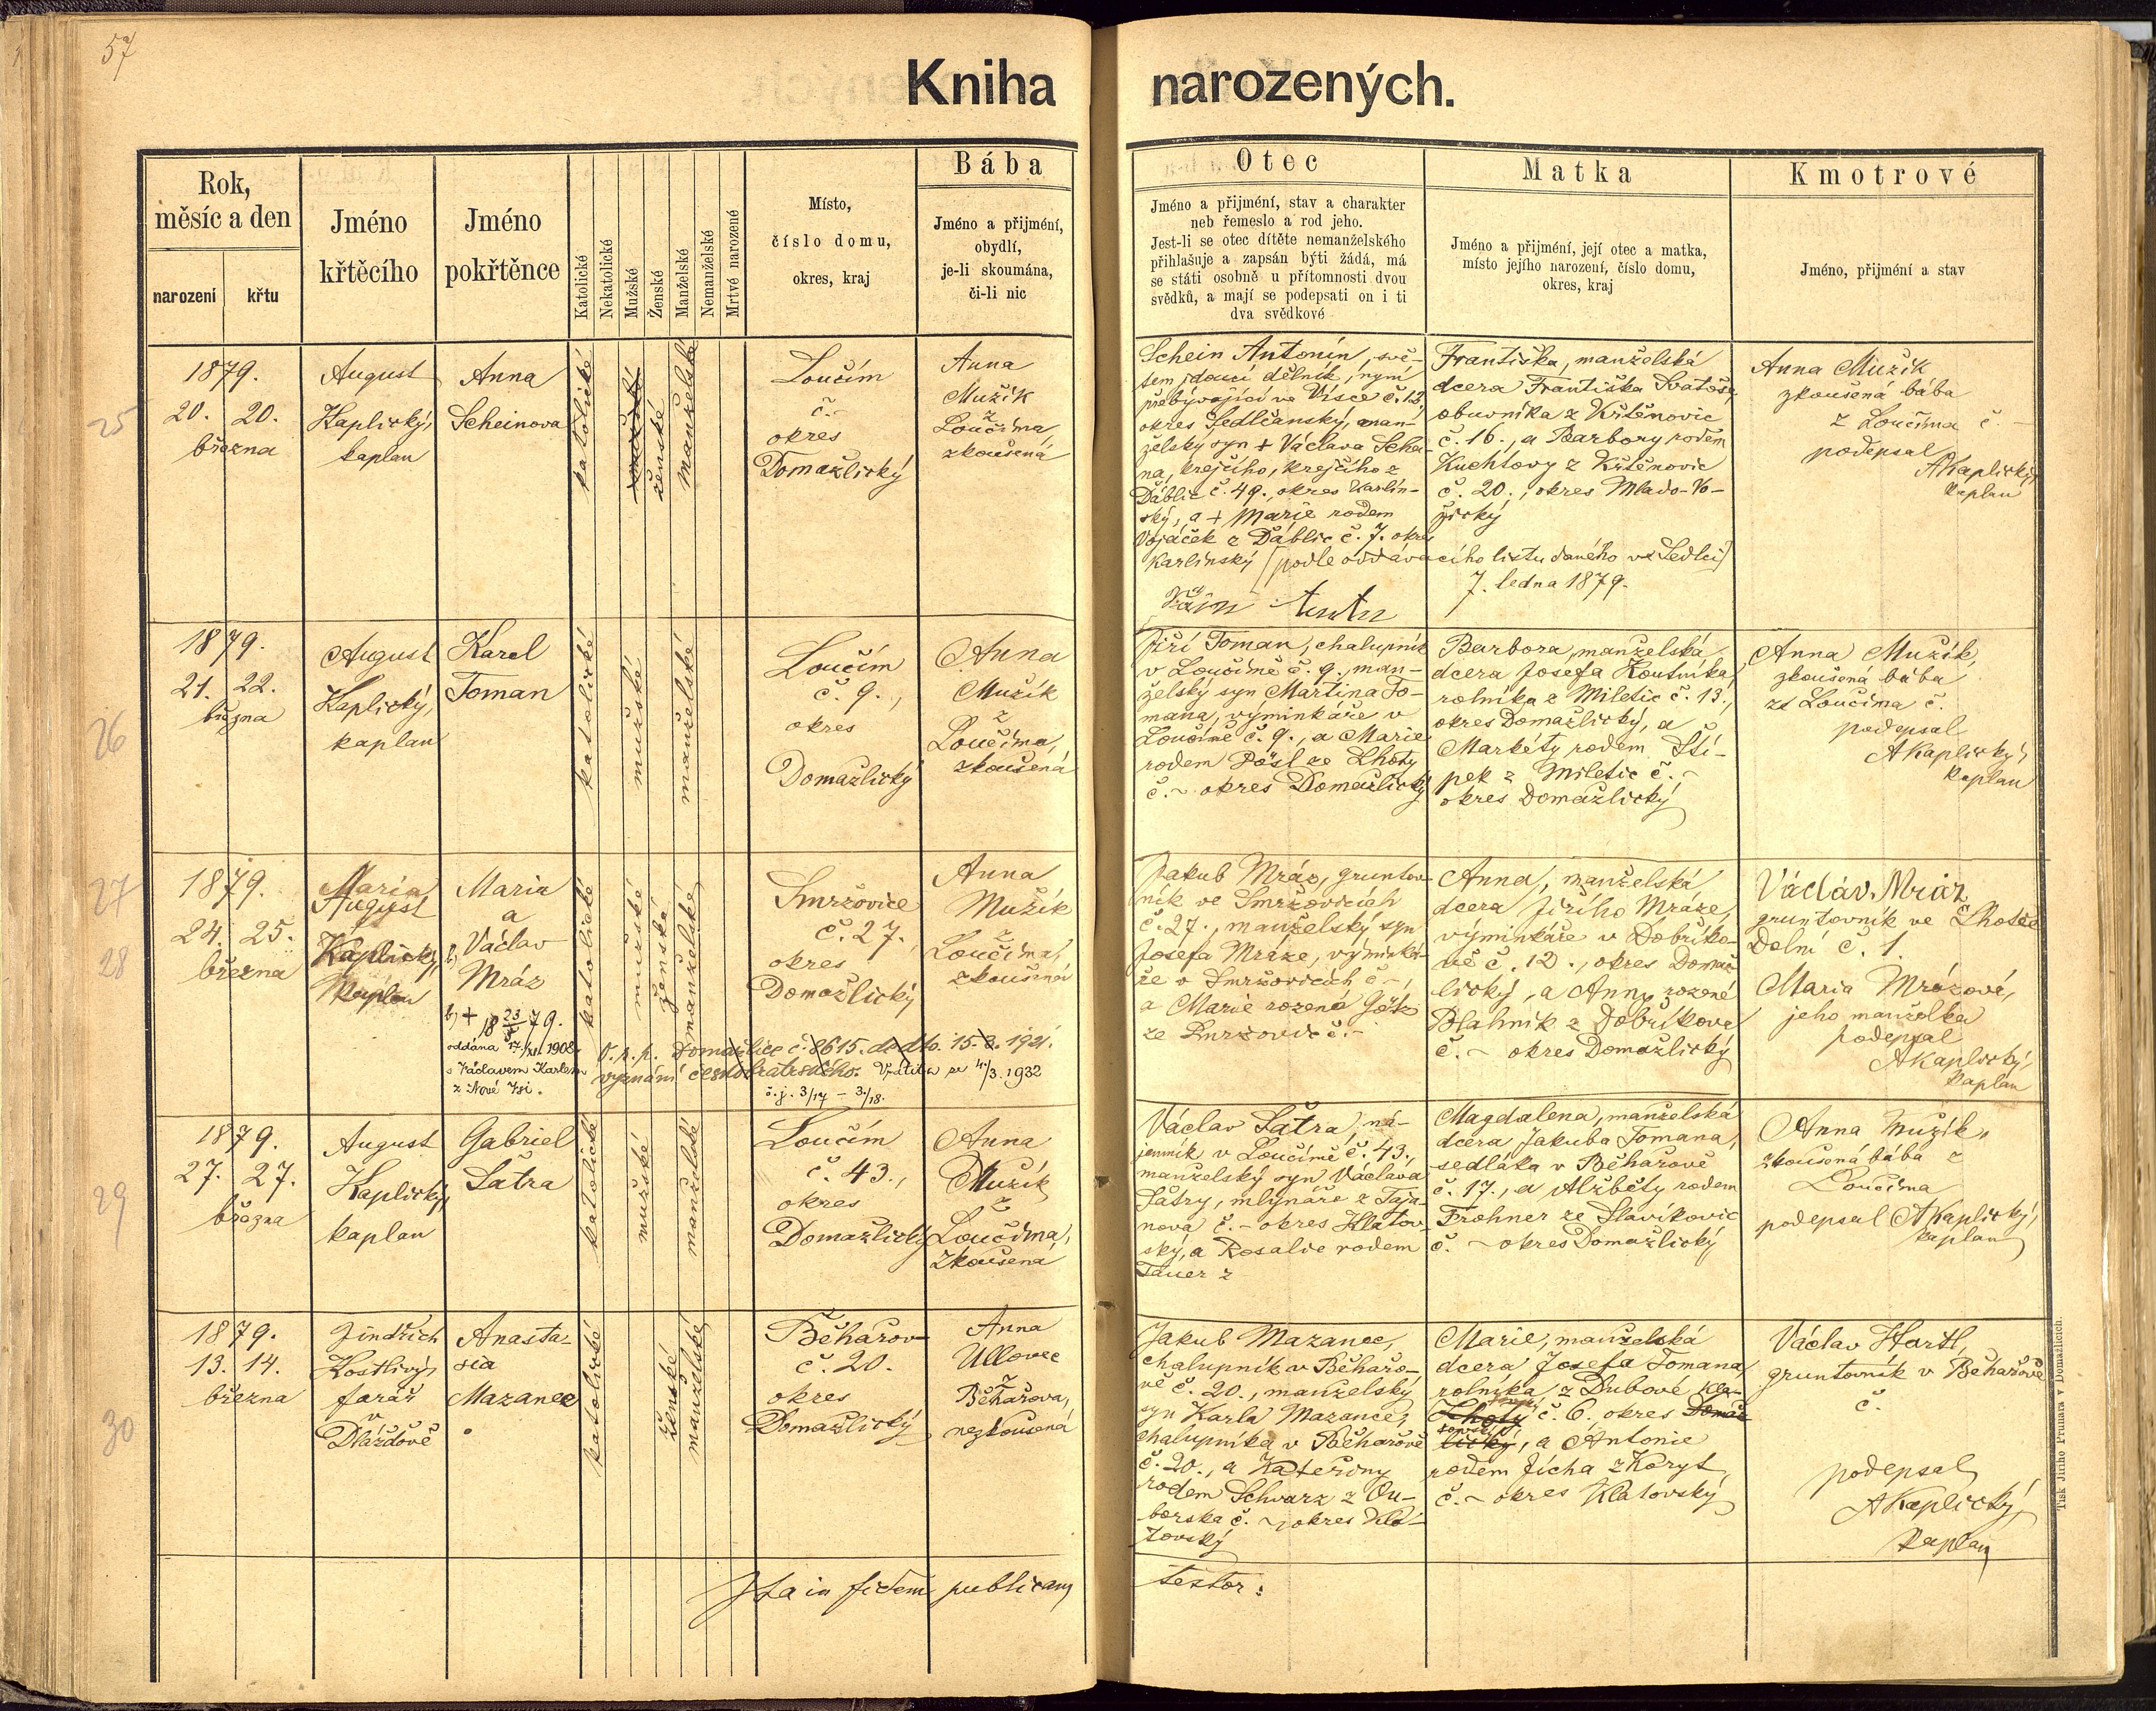 57
Kniha narozených.
Rok,
měsíc a den
narození
křtu
Jméno
křtěcího
Jméno
pokřtěnce
Katolické
Nekatolické
Mužské
Ženské
Manželské
Nemanželské
Mrtvé narozené
Místo,
číslo domu,
okres, kraj
Bába
Jméno a přijmení,
obydlí,
je-li skoumána,
či-li nic
Otec
Jméno a přijmení, stav a charakter
neb řemeslo a rod jeho.
Jest-li se otec dítěte nemanželského
přihlašuje a zapsán býti žádá, má
se státi osobně u přítomnosti dvou
svědků, a mají se podepsati on i ti
dva svědkové
Matka
Jméno a přijmení, její otec a matka,
místo jejího narození, číslo domu,
okres, kraj
Kmotrové
Jméno, přijmení a stav
25
1879.
20. 20.
března
August
Kaplický,
kaplan
Anna
Scheinova
katolické
mužské
ženské
manželské
Loučím
č. -
okres
Domažlický
Anna
Mužík
z
Loučima
zkoušená
Schein Antonín, svě-
tem jdoucí dělník, nyní
přebývající ve Visce č. 12,
okres Sedlčanský, man-
želský syn + Václava Schei-
na, krejčího, krejčího z
Ďáblic č. 49., okres Karlín-
ský, a + Marie rodem
Vojáček z Ďáblic č. 7. okres
Karlínský (podle oddávacího listu daného ve Sedlci)
7. ledna 1879.
Františka, manželská
dcera Františka Svatoše,
obuvníka z Křtěnovic
č. 16., a Barbory rodem
Kuchtovy z Křtěnovic
č. 20., okres Mlado-Vo-
žický
Anna Mužík
zkoušená bába
z Loučima č. -
podepsal
AKaplický,
kaplan
26
1879.
21. 22.
března
August
Kaplický,
kaplan
Karel
Toman
katolické
mužské
manželské
Loučím
č. 9.,
okres
Domažlický
Anna
Mužík
z
Loučima,
zkoušená
Jiří Toman, chalupník
v Loučimě č. 9., man-
želský syn Martina To-
mana, výminkáře v
Loučimě č. 9., a Marie
rodem Pösl ze Lhoty
č. ~ okres Domažlický
Barbora, manželská
dcera Josefa Koutníka,
rolníka z Miletic č. 13.,
okres Domažlický, a
Markéty rodem Ští-
pek z Miletic č. ~
okres Domažlický
Anna Mužík,
zkoušená bába
ze Loučima č.
podepsal
AKaplický,
kaplan
27
28
1879.
24. 25.
března
Maria
August
Kaplický,
kaplan
Maria
a
b) Václav
Mráz
b) + 18 23/8 79.
oddána 17./XI. 1908
s Václavem Karlem
z Nové Vsi.
katolické
mužské
ženské
manželské
Smržovice
č. 27.
okres
Domažlický
Anna
Mužík
z
Loučima,
zkoušená
O. p. p. Domažlice č. 8615. de dto. 15. 3. 1921.
vyznání českobratrského. Vrátila se 4/3. 1932
č. j. 3/17 - 3./18.
Jakub Mráz, gruntov-
ník ve Smržovicích
č. 27., manželský syn
Josefa Mráze, výminká-
ře v Smržovicích č -,
a Marie rozené
ze Smržovic č. -
Anna, manželská
dcera Jiřího Mráze,
výminkáře v Dobříko-
vě č. 12., okres Domaž-
lický, a Anny rozené
Blahník z Dobříkova
č. ~ okres Domažlický
Václav Mráz
gruntovník ve Lhotě
Dolní č. 1.
Maria Mrázová,
jeho manželka
podepsal
AKaplický,
kaplan
29
1879.
27. 27.
března
August
Kaplický,
kaplan
Gabriel
Šatra
katolické
mužské
manželské
Loučím
č. 43.,
okres
Domažlický
Anna
Mužík
z
Loučima,
zkoušená
Václav Šatra, ná-
jemník v Loučimě č. 43.,
manželský syn Václava
Šatry, mlynáře z Taja-
nova č. - okres Klatov-
ský, a Rosalie rodem
Tauer z
Magdalena, manželská
dcera Jakuba Tomana,
sedláka v Běhařově
č. 17., a Alžběty rodem
Frohner ze Slavíkovic
č. ~ okres Domažlický
Anna Mužík,
zkoušená bába z
Loučima
podepsal AKaplický,
kaplan
30
1879.
13. 14.
března
Jindřich
Kostlivý,
farář
v
Dlážďově
Anasta-
sia
Mazanec
katolické
ženské
manželské
Běhařov
č. 20.
okres
Domažlický
Anna
Ullovec
z
Běhařova,
nezkoušená
Jakub Mazanec,
chalupník v Běhařo-
vě č. 20., manželský
syn Karla Mazance,
chalupníka v Běhařově
č. 20., a Kateřiny
rodem Schwarz z Ou-
borska č. ~, okres Kla-
tovský
Marie, manželská
dcera Josefa Tomana,
rolníka z Dubové Kla-
Lhoty č. 6. okres Domaž-
lický, a Antonie
rodem Jícha z Koryt,
č. ~ okres Klatovský
Václav Hartl,
gruntovník v Běhařově
č.
podepsal
AKaplický,
kaplan
Ita in fidem publicam testor:
Tisk Jiřího Prunara v Domažlicích.